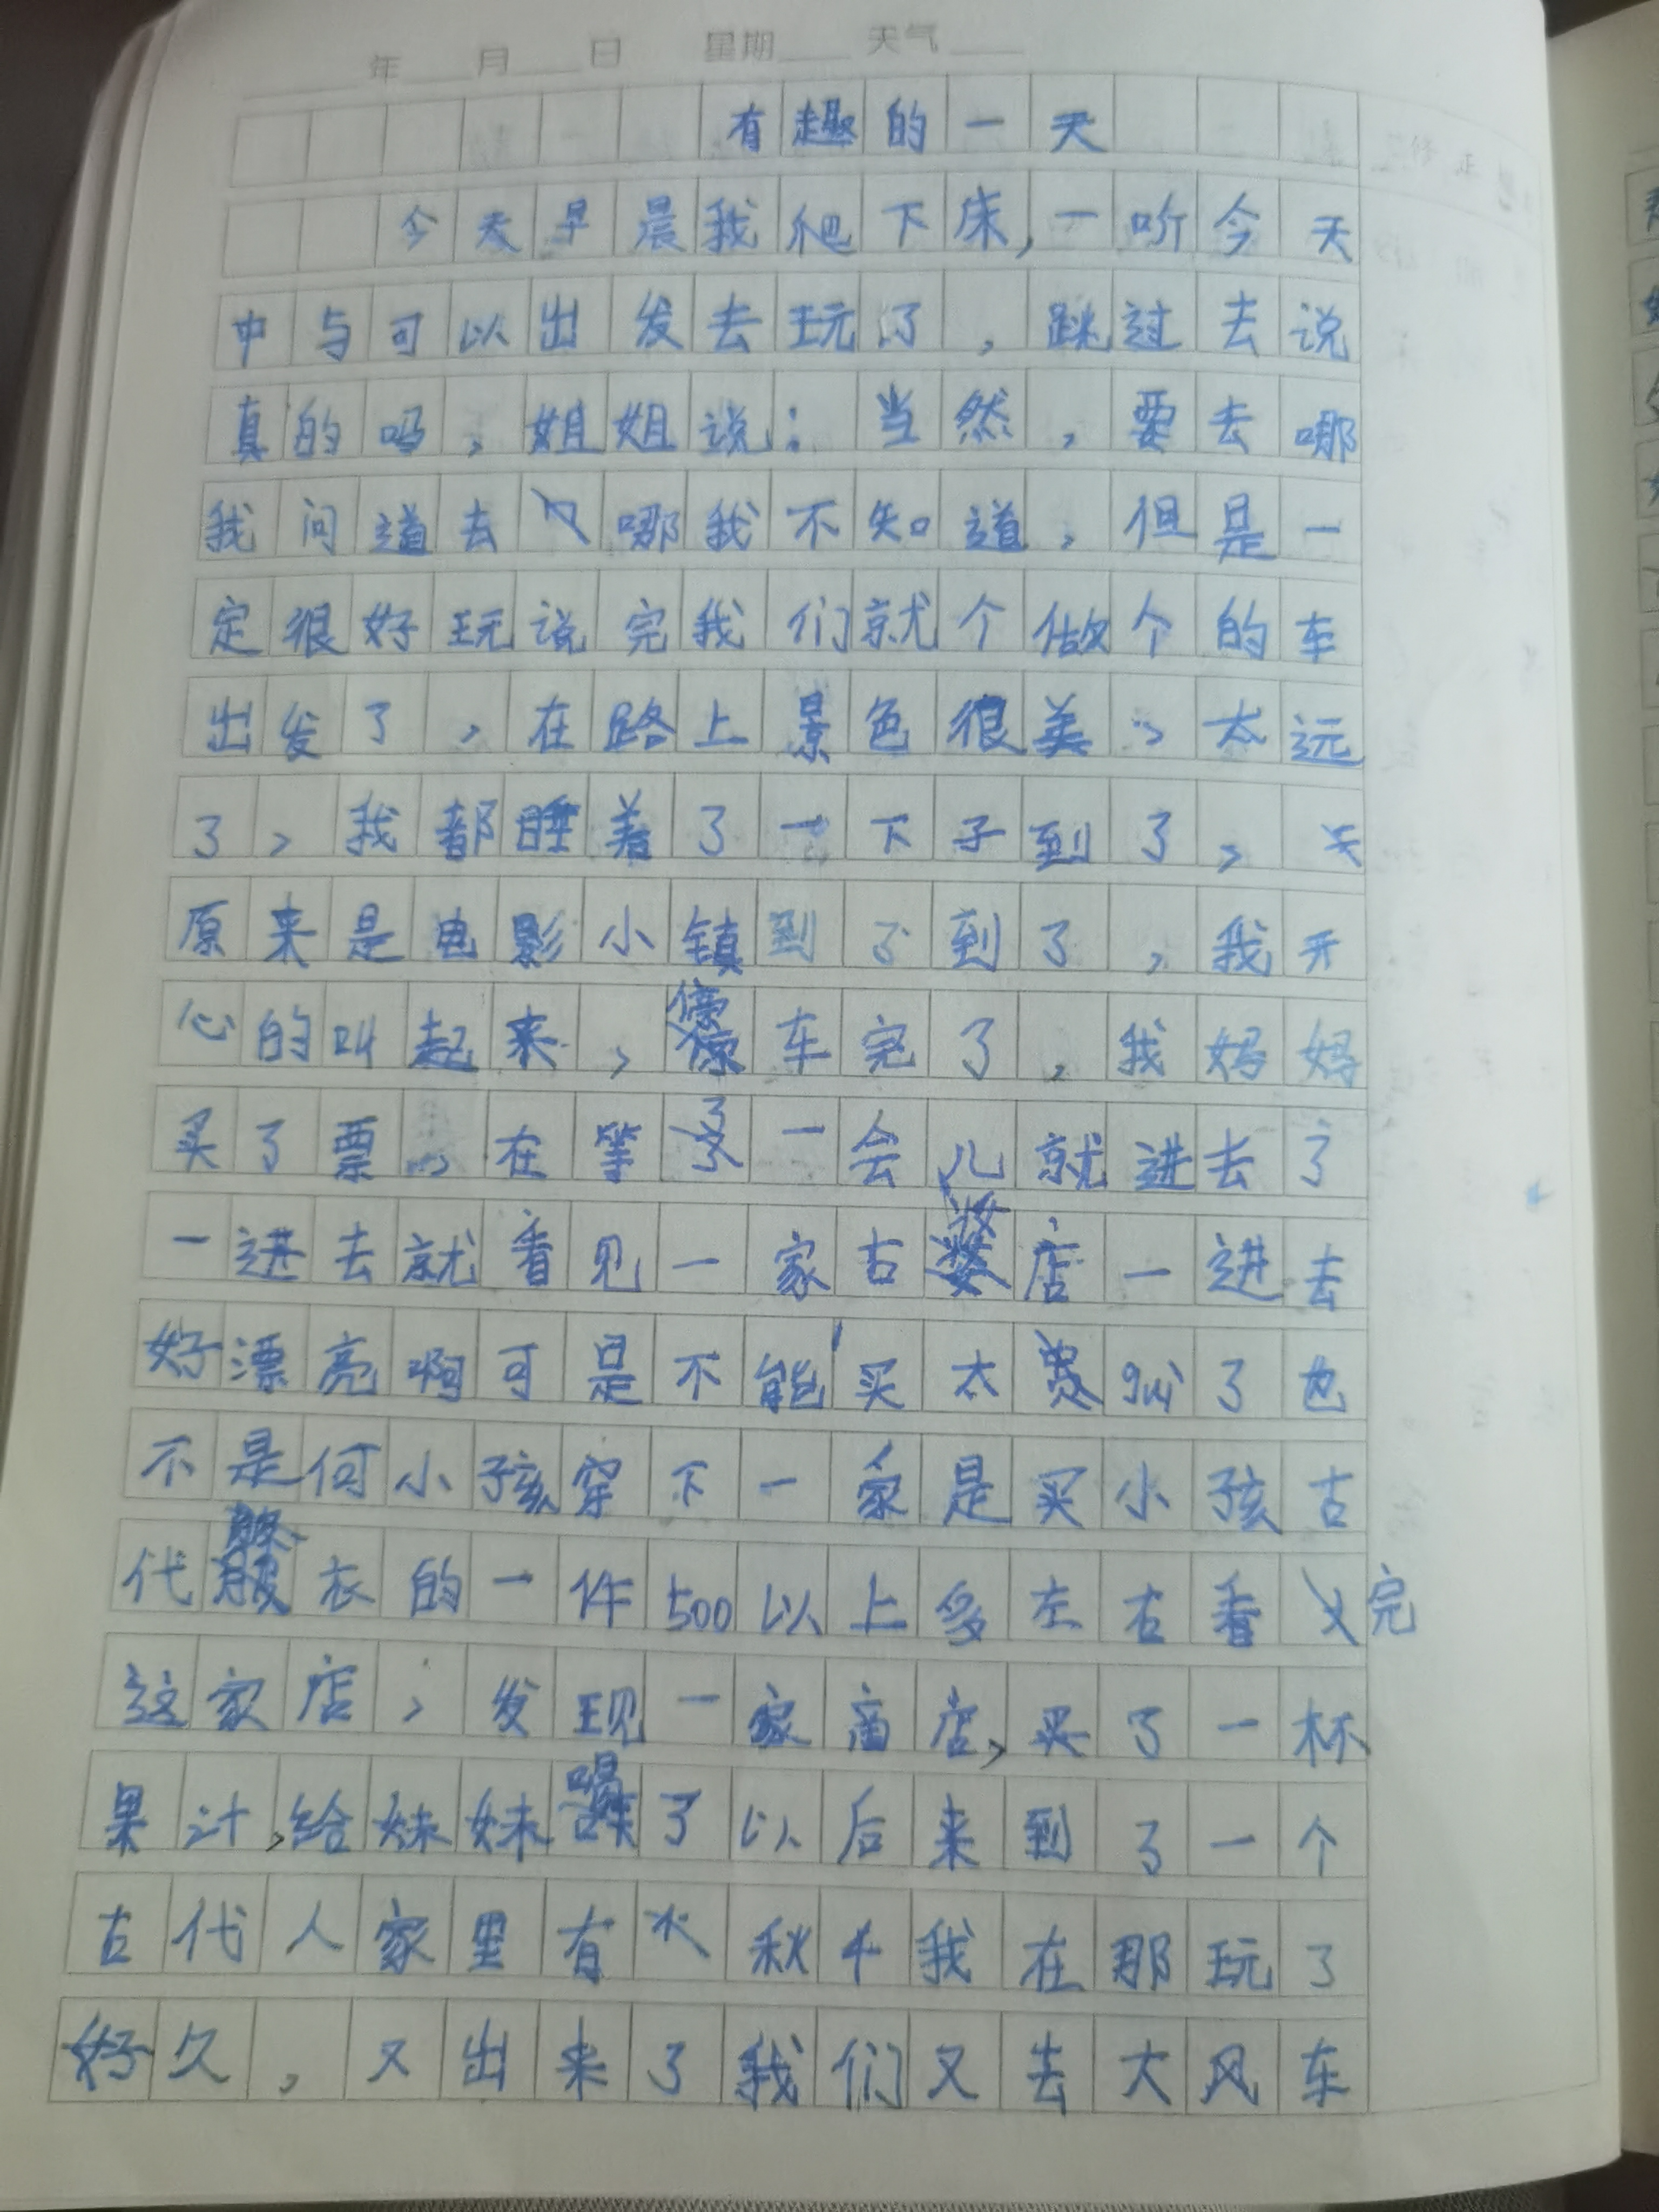 年 月 日 星期 天气
有趣的一天
今天早晨我爬下床,一听今天
中与可以出发去玩了,跳过去说
真的吗,姐姐说:当然,要去哪
我问道去哪我不知道,但是一
定很好玩说完我们就个做个的车
出发了,在路上景色很美,太远
了,我都睡着了一下子到了,天
原来是电影小镇到了到了,我开
心的叫起来,停车完了,我妈妈
买了票,在等了一会儿就进去了
一进去就看见一家古装店一进去
好漂亮啊可是不能买太贵了也
不是何小孩穿下一家是买小孩古
代衣的一件500以上多左右看完
这家店,发现一家商店,买了一杯
果汁,给妹妹喝了以后来到了一个
古代人家里有秋千我在那玩了
好久,又出来了我们又去大风车